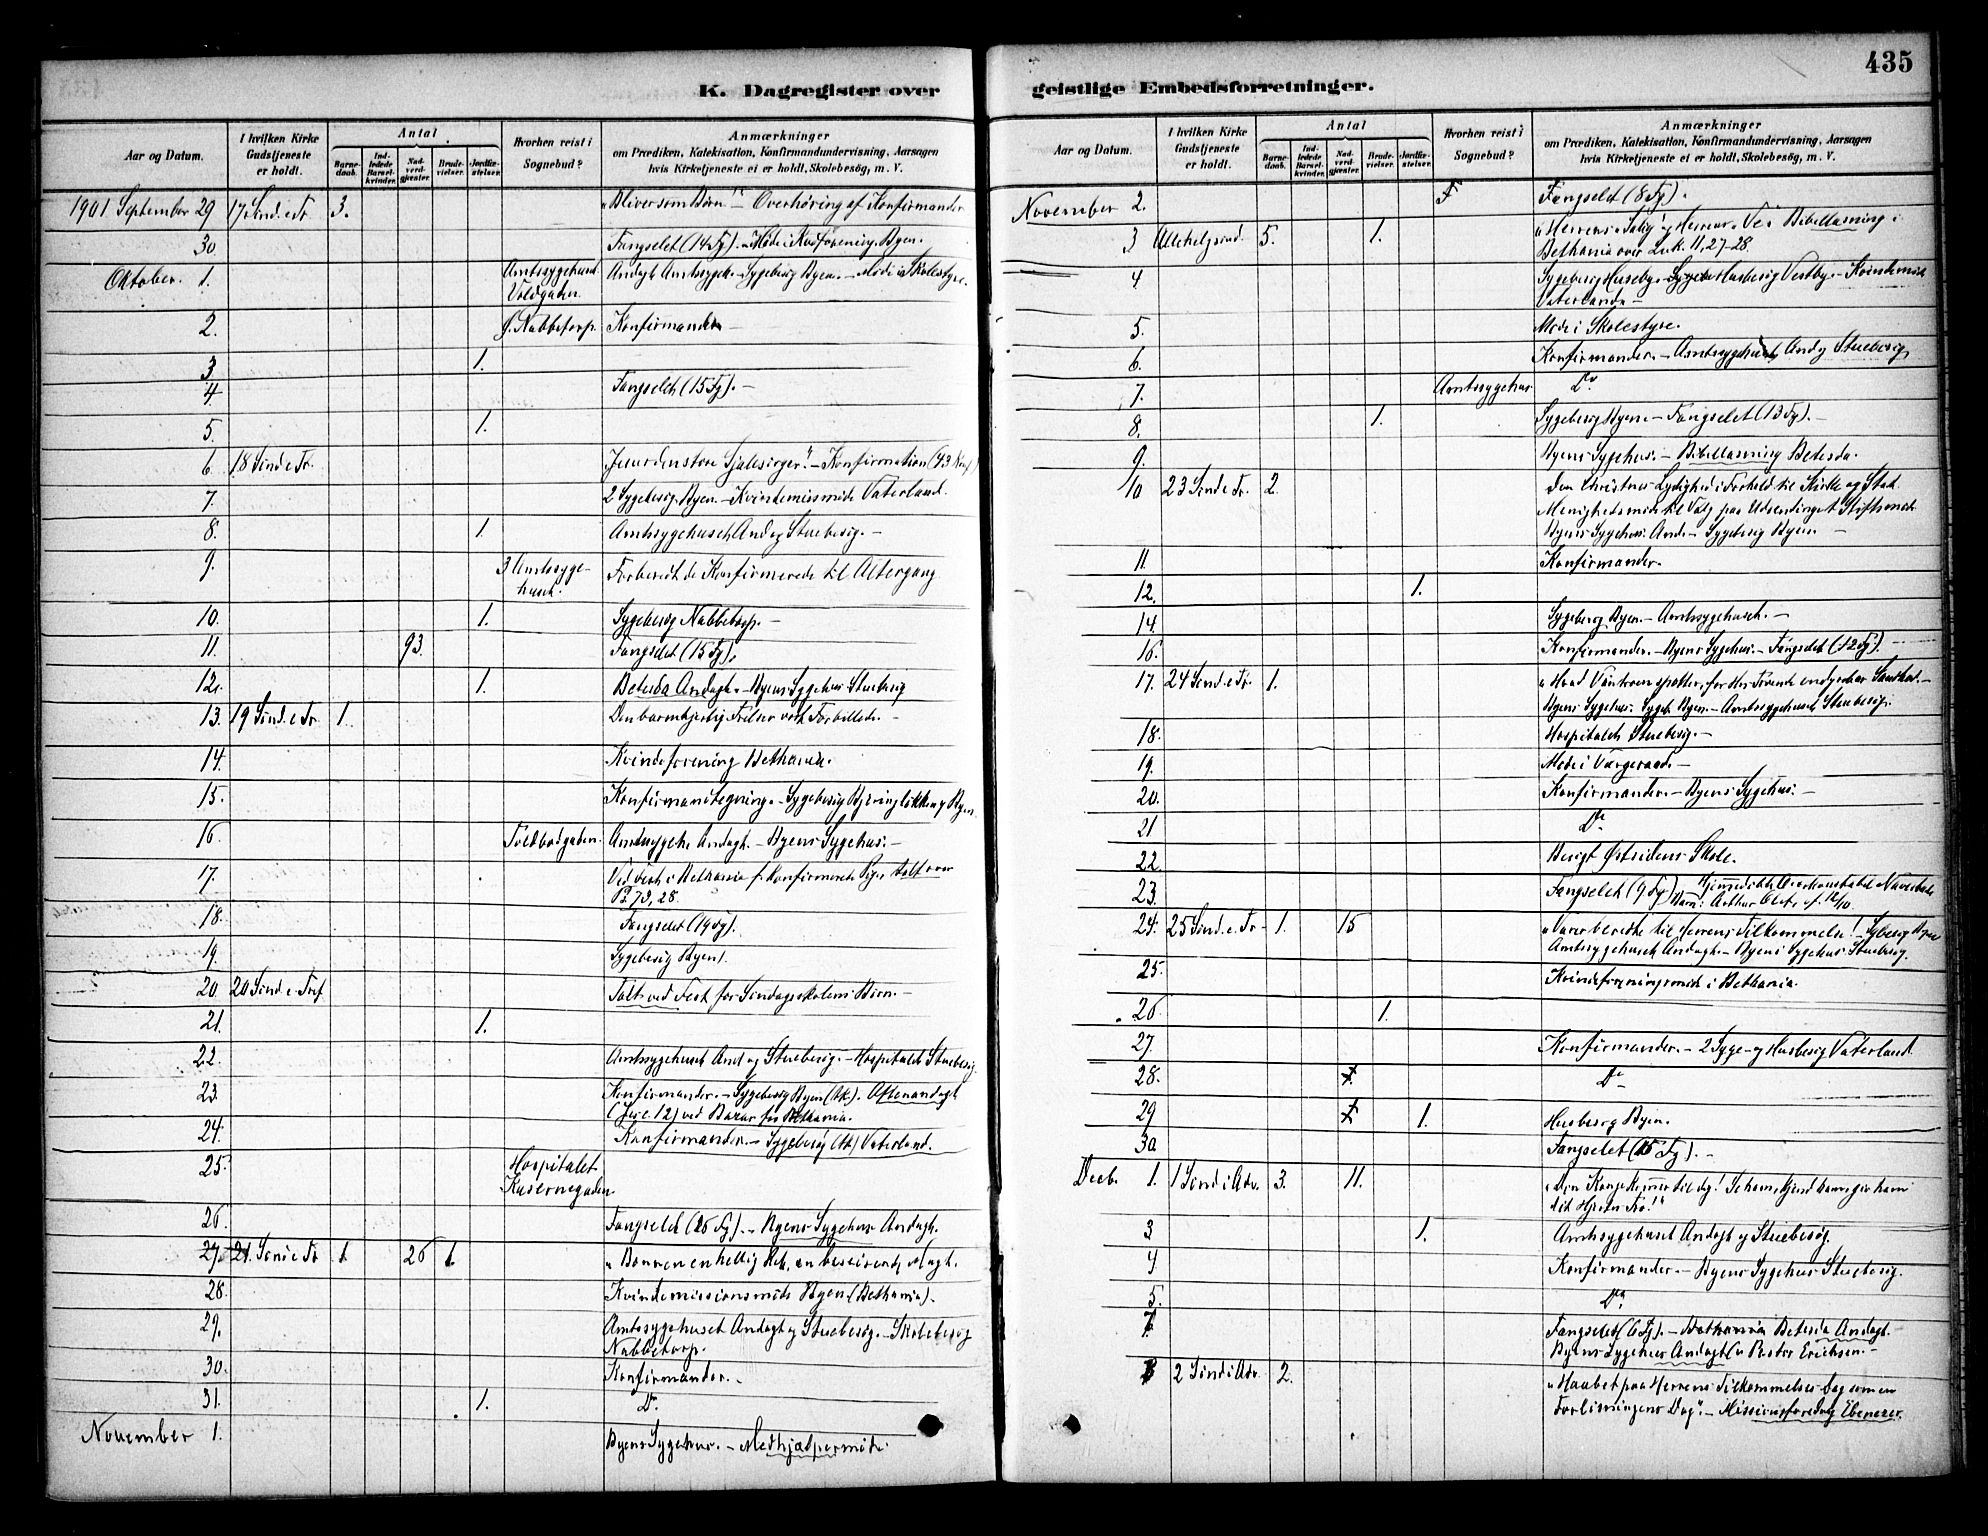 K. Dagregister over
Aar og Datum.
I hvilken Kirke Gudstjeneste er holdt.
Antal
Barnedaab.
Indledede Barselkvinder.
Nadverdgjæster.
Brudevielser.
Jordfæstelser.
Hvorhen reist i Sognebud?
Anmærkninger
om Prædiken, Katekisation, Konfirmandundervisning, Aarsagen
hvis Kirketjeneste ei er holdt, Skolebesøg, m. V.
1901 September 29 17 Sønd. e Tr. 3. "Bliver som Børn" Overhøring af Konfirmander
30 Fængselet (14 Fg). Møde i Kvforening. Byen.
Oktober. 1. Amtssygehuset Andagt Amtssygeh. Sygebesøg Byen. Møde i Skolestyre.
Voldgaten.
2. Nabbetorp. Konfirmander
3 1.
4. Fængselet (15 Fg).
5. 1.
6 18 Sønd e Tr. Sjælesørger." Konfirmation
7. 2 Sygebesøg. Byen. Kvindemissmøde Vaterland.
8. 1. Amtssygehuset, And og Stuebesøg.
9. 3 Amtssygehuset. Forberedt de Konfirmerede til Altergang
10. 1. Sygebesøg Nabbetorp.
11. 93. Fængselet (15 Fg).
12. 1. Betesda Andagt. Byens Sygehus Stuebesøg
13. 19 Sønd. e Tr. 1. Den barmhjertig Frelser vort Forbillede.
14. Kvindeforening Bethania.
15. Konfirmandtegning. Sygebesøg Byen.
16 Toldbodgaden. Amtssygeh. Andagt. Byens Sygehus.
17. Ved Fest i Bethania f. Konfirmerede Piger Talt over
Ps. 73, 28.
18. Fængselet (19 Fg).
19. Sygebesøg Byen.
20. 20 Sønd e. Tref Talt ved Fest for Søndagsskolens Børn.
21. 1.
22. Amtssygehuset And og Stuebesøg. Hospitalet Stuebesøg.
23. Konfirmander. Sygebesøg Byen. Aftenandagt
ved Bazar for Bethania.
24. Konfirmander. Sygebesøg Vaterland.
25. Hospitalet
Kasernegaden
26. Fængselet (26 Fg). Byens Sygehus Andagt.
27. 21. Sønd e Tr 1 26 1. "Bønnen en hellig Ret, en beseirende Magt.
28. Kvindemissionsmøde Byen (Bethania).
29. Amtssygehuset Andagt og Stuebesøg. Skolebesøg
Nabbetorp.
30. Konfirmander.
31. 1. Do
November 1. Byens Sygehus. Medhjælpermøde.
435
geistlige Embedsforretninger.
Aar og Datum.
I hvilken Kirke Gudstjeneste er holdt.
Antal
Barnedaab.
Indledede Barselkvinder.
Nadverdgjæster.
Brudevielser.
Jordfæstelser.
Hvorhen reist i Sognebud?
Anmærkninger
om Prædiken, Katekisation, Konfirmandundervisning, Aarsagen
hvis Kirketjeneste ei er holdt, Skolebesøg, m. V.
November 2. F Fængselet (8 Fg).
3 Allehelgsønd. 5. 1. "Herrens Salig og Herrens Ve" Bibellæsning i
Bethania over Luk. 11, 27-28.
4 Sygebesøg Huseby. Husbesøg Vestby. Kvindemøde
Vaterland
5. Møde i Skolestyre.
6. Konfirmander. Amtssygehuset And og Stuebesøg
7. Amtssygehus. Do
8. 1. Sygebesøg Byen. Fængselet (13 Fg).
9. Byens Sygehus. Bibellæsning Betesda.
10 23 Sønd e Tr. 2. Den Christnes Lydighed i Forhold til Kirke og Stat
Menighedsmøde til Valg paa Udsendinge t. Stiftsmøde
Byens Sygehus. And. Sygebesøg Byen
11. Konfirmander.
12. 1.
14. Sygebesøg Byen. Amtssygehuset.
16. Konfirmander. Byens Sygehus. Fængselet (12 Fg).
17. 24 Sønd. e Tr. 1. "Hvad Vantroen spotter, for Troende Sandhed.
Byens Sygehus. Sygeb. Byen. Amtssygehuset Stuebesøg.
18. Hospitalet Stuebesøg.
19. Møde i Værgeraad.
20. Konfirmander. Byens Sygehus.
21 Do
22. Besøgt Østsidens Skole.
23. Fængselet (9 Fg). Hjemmedøbt
Barn: Arthur
24. 25 Sønd. e. Tr. 1. 15 "Være beredte til Herrens Tilkommelse! Sygebesøg Byen
Amtssygehuset Andagt. Byens Sygehus Stuebesøg.
25. Kvindeforeningsmøde i Bethania.
26 1.
27. Konfirmander. 2 Syge- og Husbesøg Vaterland
28. Do
29 1. Husbesøg Byen.
30 Fængselet (15 Fg).
Decb. 1. 1 Sønd i Adv. 3. 11. "Din Konge kommer til dig! Se ham, kjend ham, giv ham
dit Hjertes Tro!"
3 1. Amtssygehuset Andagt og Stuebesøg.
4 Konfirmander. Byens Sygehus Stuebesøg.
5. Do
7 Fængselet (6 Fg). Betesda Andagt.
Byens Sygehus Andagt (v Pastor Erichsen.
8 2 Sønd i Adv. 2. "Haabet paa Herrens Tilkommelses Dag som en
Forløsningens Dag". Missionsforedrag Ebenezer.